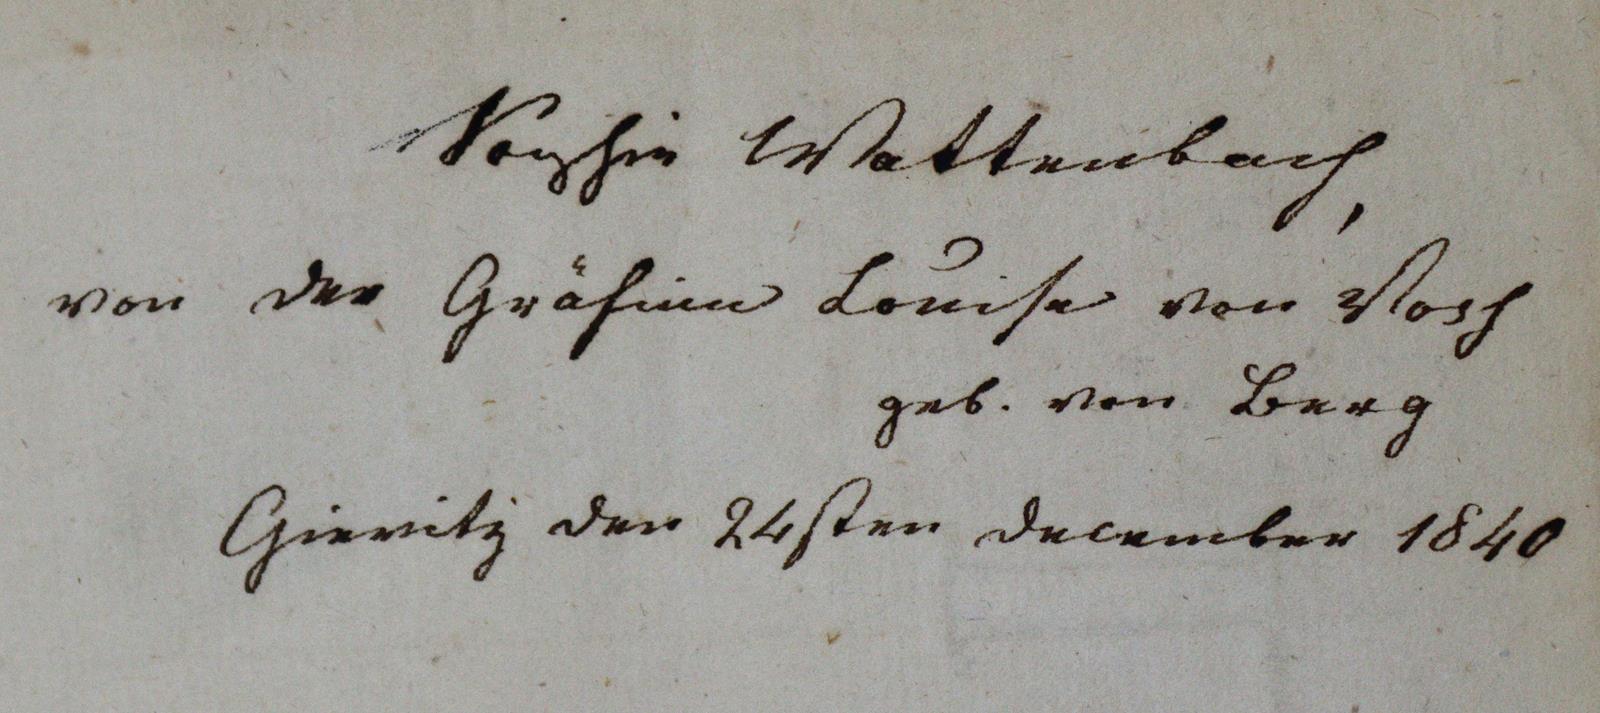 Sophie Wattenbach,
von der Gräfinn Louise von Voss
geb. von Berg
Gievitz den 24sten december 1840